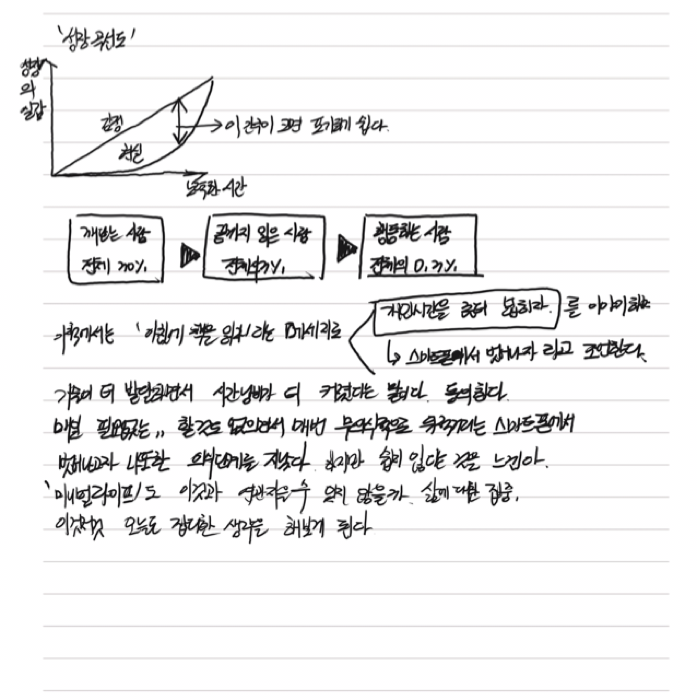 '성장 곡선도'
성장
의
실감
감정
현실
이 간격이 크면 포기하기 쉽다.
노력한 시간
깨닫는 사람
전체 20%.
끝까지 읽은 사람
전체의 %.
행동하는 사람
전체의 0. %.
'이렇게 책을 읽자' 라는 메세지로
개인시간을 넓히라. 를 이야기하며
↳ 스마트폰에서 벗어나자 라고 조언한다.
기술이 더 발달되면서 시간낭비가 더 커졌다는 동의한다.
매일 필요없는,, 할것도 없으면서 매번 무의식적으로 스마트폰에서
벗어나고자 나 또한 하지만 쉽지 않다는 것을 느낀다.
'미니멀라이프'도 이것과 수 있지 않을까. 삶에 대한 집중.
이것저것 오늘도 잡다한 생각을 해보게 된다.